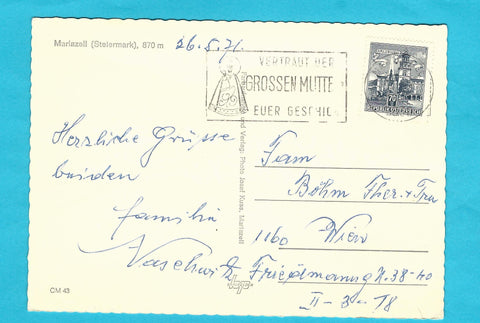 Mariazell (Steiermark), 870 m
26.5.71.
VERTRAUT DER
GROSSEN MUTTE
EUER GESCHIC
Herzliche Grüsse
familie
Fam
Böhm Ther. +
1160 Wien
Friedmanng N. 38-40
II - 3 - 18
und Verlag: Photo Josef Kuss, Mariazell
CM 43